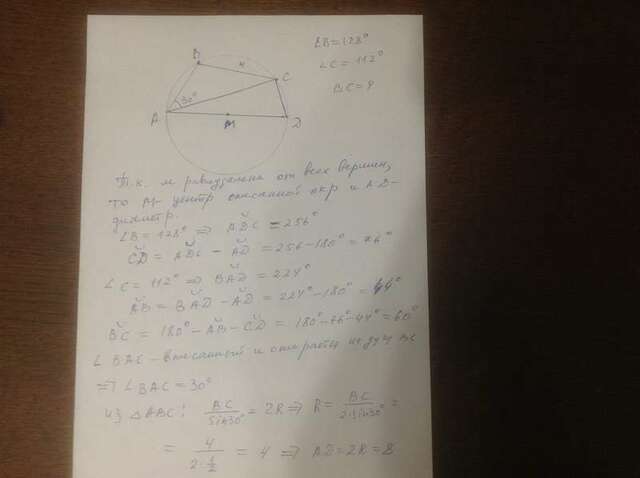 B
4
C
30°
A
M
D
∠B=128°
∠C = 112°
BC=?
Т.к. М равноудалена от всех вершин,
то М- центр описанной окр и AD-
диаметр.
∠B = 128° ⇒ ADC = 256°
CD = ADC - AD = 256-180° = 76°
∠C = 112° ⇒ BAD = 224°
AB = BAD - AD = 224°-180° = 44°
BC = 180° - AB - CD = 180°-76°-44° = 60°
∠ BAC - вписанный и опирается на дугу BC
⇒ ∠BAC = 30°
из △ABC: BC/sin30° = 2R ⇒ R = BC/2·sin30° =
= 4/2·1/2 = 4 ⇒ AD = 2R = 8